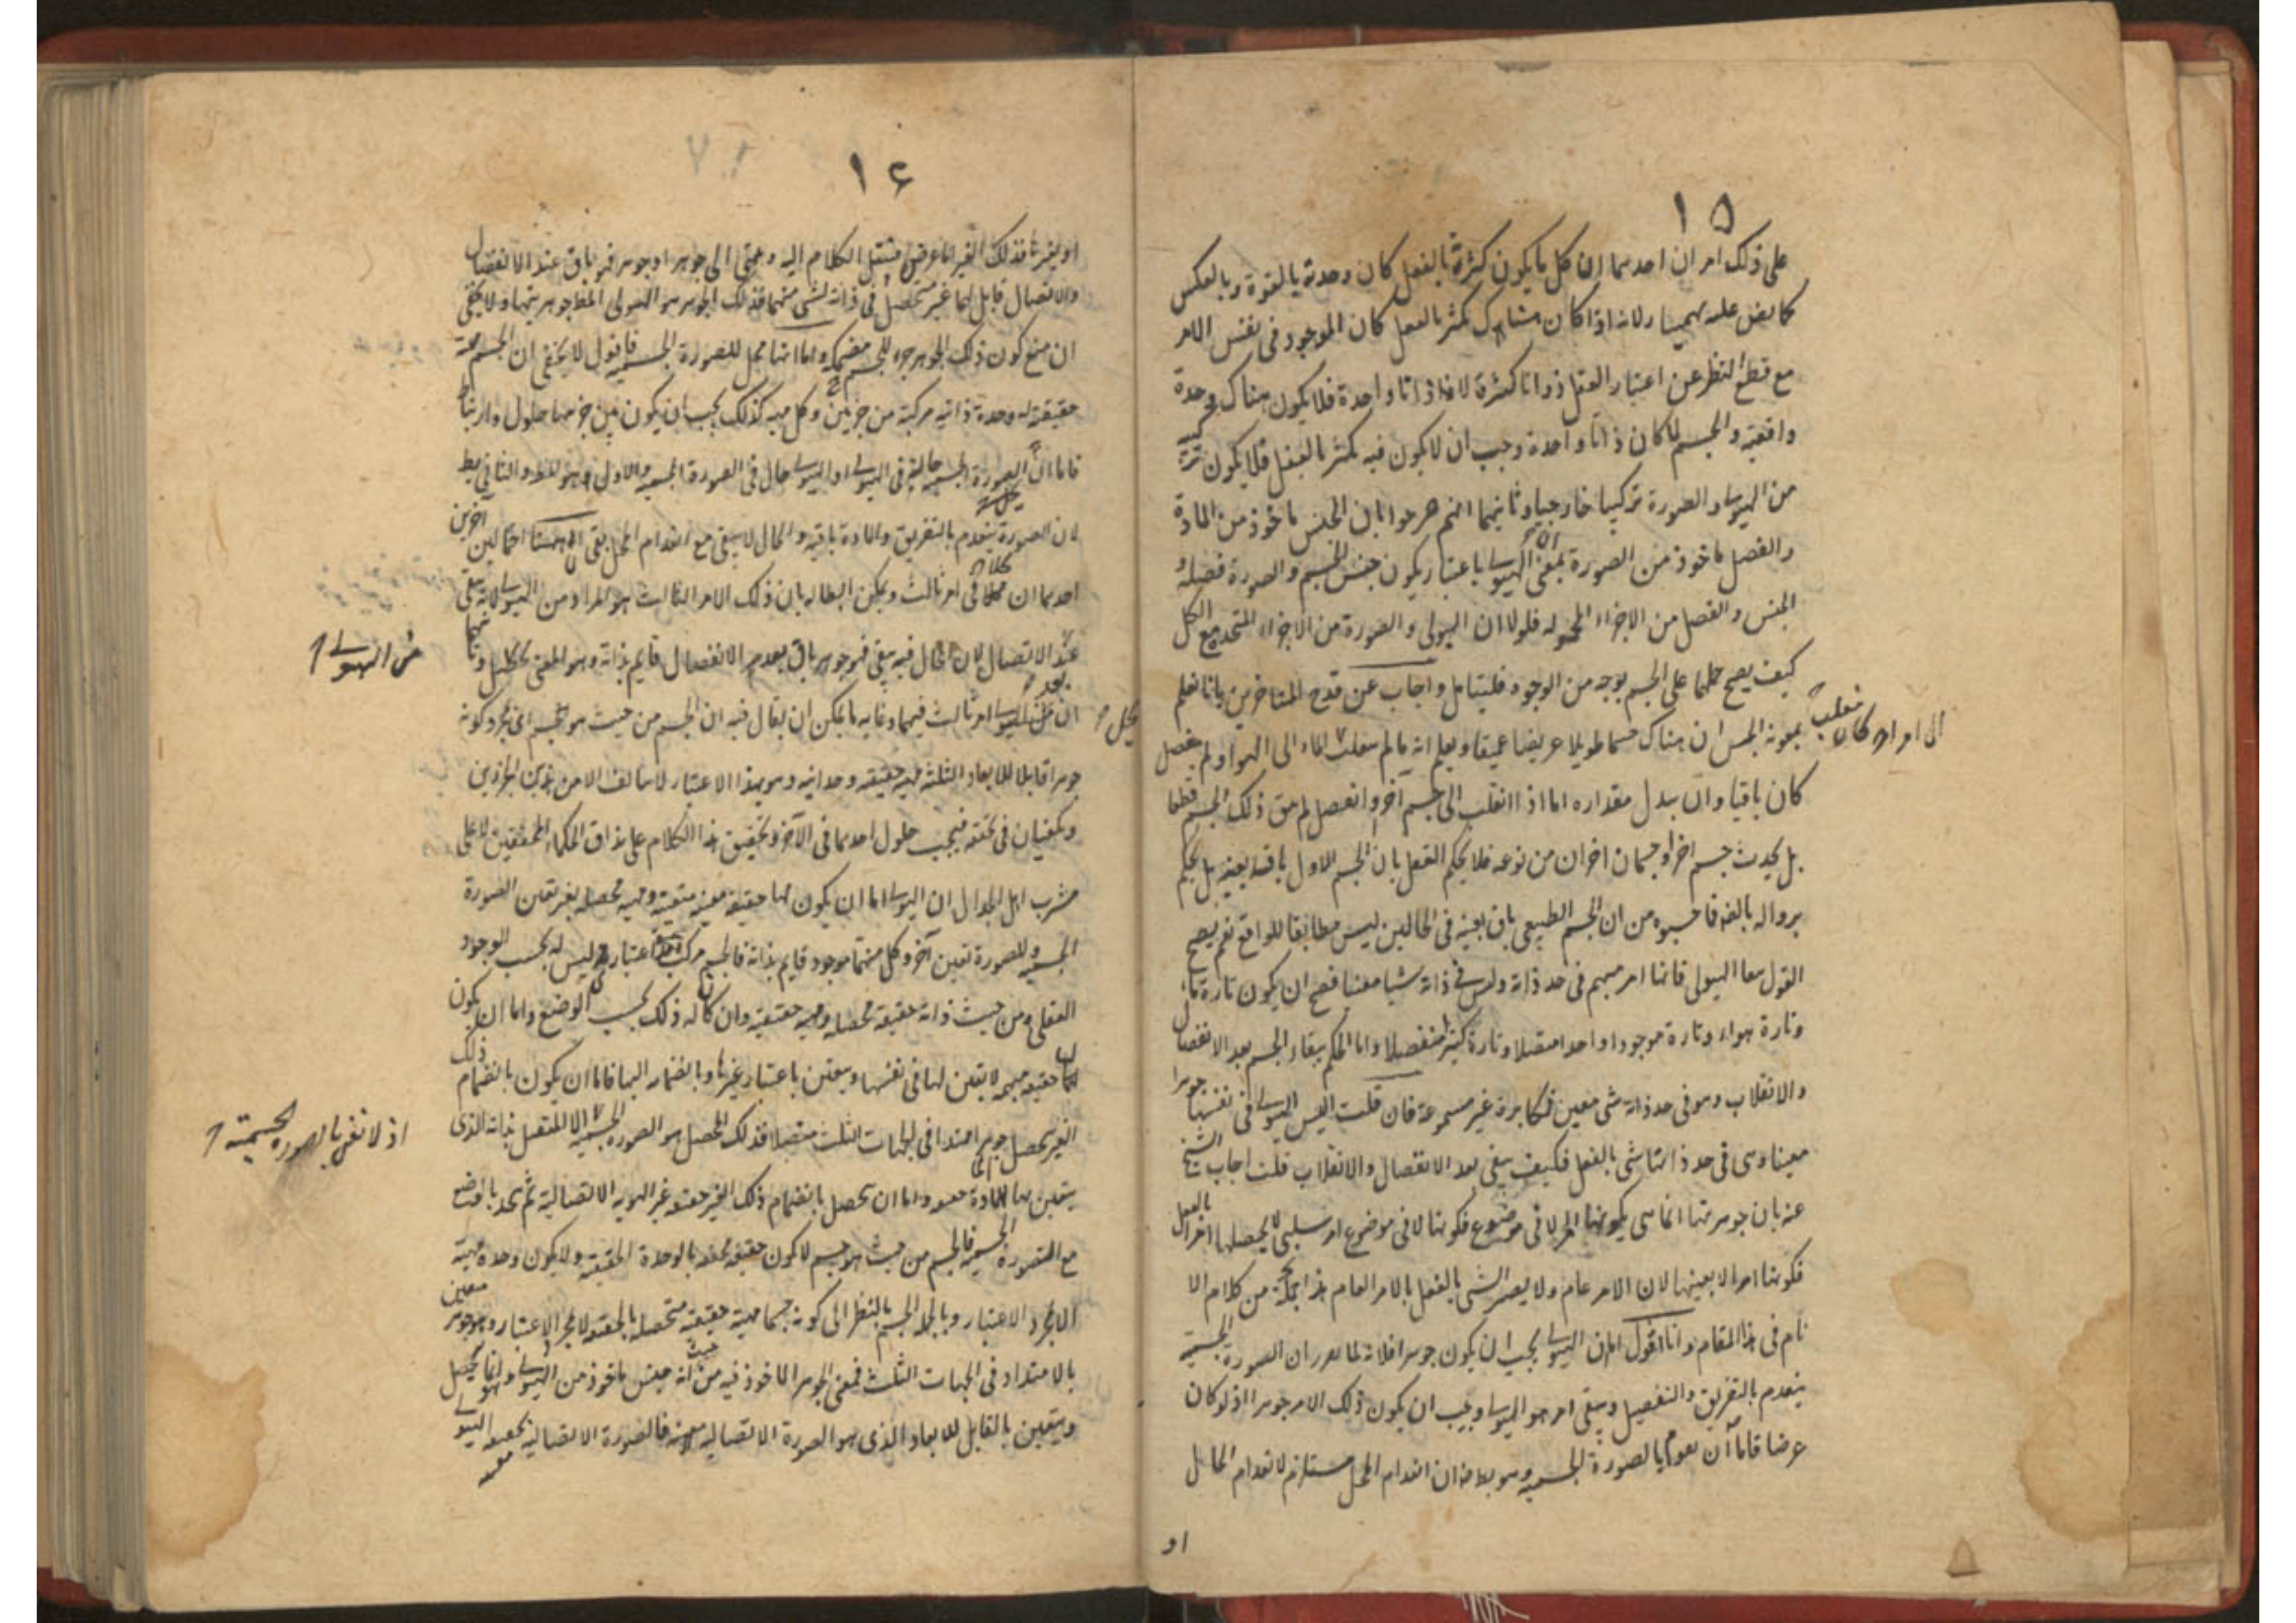 ١٥
على ذلك امران احدهما ان كل ما يكون كثرة بالفعل كان وحدته بالقوة وبالعكس
كما نص عليه بهمنيار لانه اذا كان هناك تكثر بالفعل كان الموجود فى نفس الامر
مع قطع النظر عن اعتبار العقل ذواتا كثيرة لا ذاتا واحدة فلا يكون هناك وحدة
واقعية والجسم لما كان ذاتا واحدة وجب ان لا يكون فيه تكثر بالفعل فلا يكون
من الهيولى والصورة تركيبا خارجيا وثانيهما انهم صرحوا بان الجنس ماخوذ من المادة
والفصل ماخوذ من الصورة بمعنى ان الهيولى باعتبار يكون جنس الجسم والصورة فصله و
الجنس والفصل من الاجزاء المحمولة فلولا ان الهيولى والصورة من الاجزاء المتحدة مع الكل
كيف يصح حملها على الجسم بوجه من الوجوه فليتامل واجاب عن قدح المتاخرين بانا نعلم
بمعونة الحس ان هناك جسما طويلا عريضا عميقا ونعلم انه ما لم ينقلب الماء الى الهواء ولم ينفصل
كان باقيا وان تبدل مقداره اما اذا انقلب الى جسم آخر وانفصل لم يبق ذلك الجسم قطعا
بل يحدث جسم آخر او جسمان اخران من نوعه فلا يحكم العقل بان الجسم الاول باق بعينه بل يحكم
بزواله بالمرة فما حسبوه من ان الجسم الطبيعى باق بعينه فى الحالين ليس مطابقا للواقع نعم يصح
القول ببقاء الهيولى فانها امر مبهم فى حد ذاته وليس فى ذاته شيئا معينا فصح ان يكون تارة ماء
وتارة هواء وتارة موجودا واحدا متصلا وتارة كثيرا منفصلا واما الحكم ببقاء الجسم بعد الانفصال
والانقلاب وهو فى حد ذاته شىء معين فمكابرة غير مسموعة فان قلت اليس الهيولى فى نفسها جوهرا
معينا وهى فى حد ذاتها شىء بالفعل فكيف يبقى بعد الانفصال والانقلاب قلت اجاب الشيخ
عنه بان جوهريتها انما هى كونها امرا لا فى موضوع فكونها لا فى موضوع امر سلبى لا يحصلها امرا بالفعل
فكونها امرا لا بعينها لان الامر عام ولا يصير الشىء بالفعل بالامر العام هذا من كلام الا
مام فى هذا المقام وانا اقول اما ان الهيولى يجب ان يكون جوهرا فلانه لما تقرر ان الصورة الجسمية
ينعدم بالتفريق والتفصيل ويبقى امر هو الهيولى ويجب ان يكون ذلك الامر جوهرا اذ لو كان
عرضا فاما ان يقوم بالصورة الجسمية وهو بط فان انعدام المحل مستلزم لانعدام الحال
او
ينقلب
الى امر اخر كان
١٦
او بغيرها فذلك الغير اما عرض فننقل الكلام اليه وينتهى الى جوهر او جوهر فهو باق عند الانفصال
والاتصال قابل لهما غير متحصل فى ذاته لشىء منهما فذلك الجوهر هو الهيولى اما جوهريتها ولا يخفى
ان منع كون ذلك الجوهر جزء للجسم مضمحل واما انها محل للصورة الجسمية فاقول لا يخفى ان الجسم مهية
حقيقية له وحدة ذاتية مركبة من جزئين وكل مهية كذلك يجب ان يكون بين جزئيها حلول وارتباط
فاما ان الصورة الجسمية حالة فى الهيولى او الهيولى حال فى الصورة الجسمية والاول هو المط والثانى بط
لان الصورة ينعدم بالتفريق والمادة باقية والحال لا يبقى مع انعدام المحل بقى ههنا احتمالين آخرين
احدهما ان كلاهما فى امر ثالث ويمكن ابطاله بان ذلك الامر الثالث هو المراد من الهيولى لانه يبقى
عند الاتصال لان الحال فيه يبقى فهو جوهر باق بعدم الانفصال قايم بذاته وهو المعنى وثانيهما
ان الهيولى امر ثالث فيهما وغاية ما يمكن ان يقال فيه ان الجسم من حيث هو جسم اى مجرد كونه
جوهرا قابلا للابعاد الثلثة مهية حقيقية وحدانية وهو بهذا الاعتبار لا يتالف الا من هذين الجزئين
ويكفيان فى تحققه فيجب حلول احدهما فى الآخر وتحقيق هذا الكلام على مذاق الحكماء المحققين لا على
مشرب اهل الجدال ان الهيولى اما ان يكون لها حقيقة معينة متعينة ومهية محصلة بغير تعين الصورة
الجسمية وللصورة تعين آخر وكل منهما موجود قايم بذاته فالجسم مركب اعتبارى وليس له بحسب الوجود
العقلى ومن حيث ذاته حقيقة محصلة ومهية حقيقية وان كان له ذلك بحسب الوضع واما ان يكون
لها حقيقة مبهمة لا تعين لها فى نفسها ويتعين باعتبار غيرها وبانضمامه اليها فاما ان يكون بانضمام ذلك
الغير يحصل جوهرا ممتدا فى الجهات الثلث متصلا فذلك المحصل هو الصورة الجسمية المتصل بذاته الذى
يتعين بها المادة واما ان يحصل بانضمام ذلك الغير حقيقة غير الهوية الاتصالية ثم يتحد بالوضع
مع الصورة الجسمية فالجسم من حيث هو جسم لا يكون حقيقة محققة بالوحدة الحقيقية ولا يكون وحدة مهيته
الا بمجرد الاعتبار وبالجملة الجسم بالنظر الى كونه جسما مهية حقيقية متحصلة بالحقيقة لا بمجرد الاعتبار وهو جوهر متعين
بالامتداد فى الجهات الثلث فمعنى الجوهر الماخوذ فيه من حيث انه جنس ماخوذ من الهيولى وانما يحصل
ويتعين بالقابل للابعاد الذى هو الصورة الاتصالية فالصورة الاتصالية الهيولى
من الهيولى
يحل
اذ لا نعنى بالصورة الجسمية